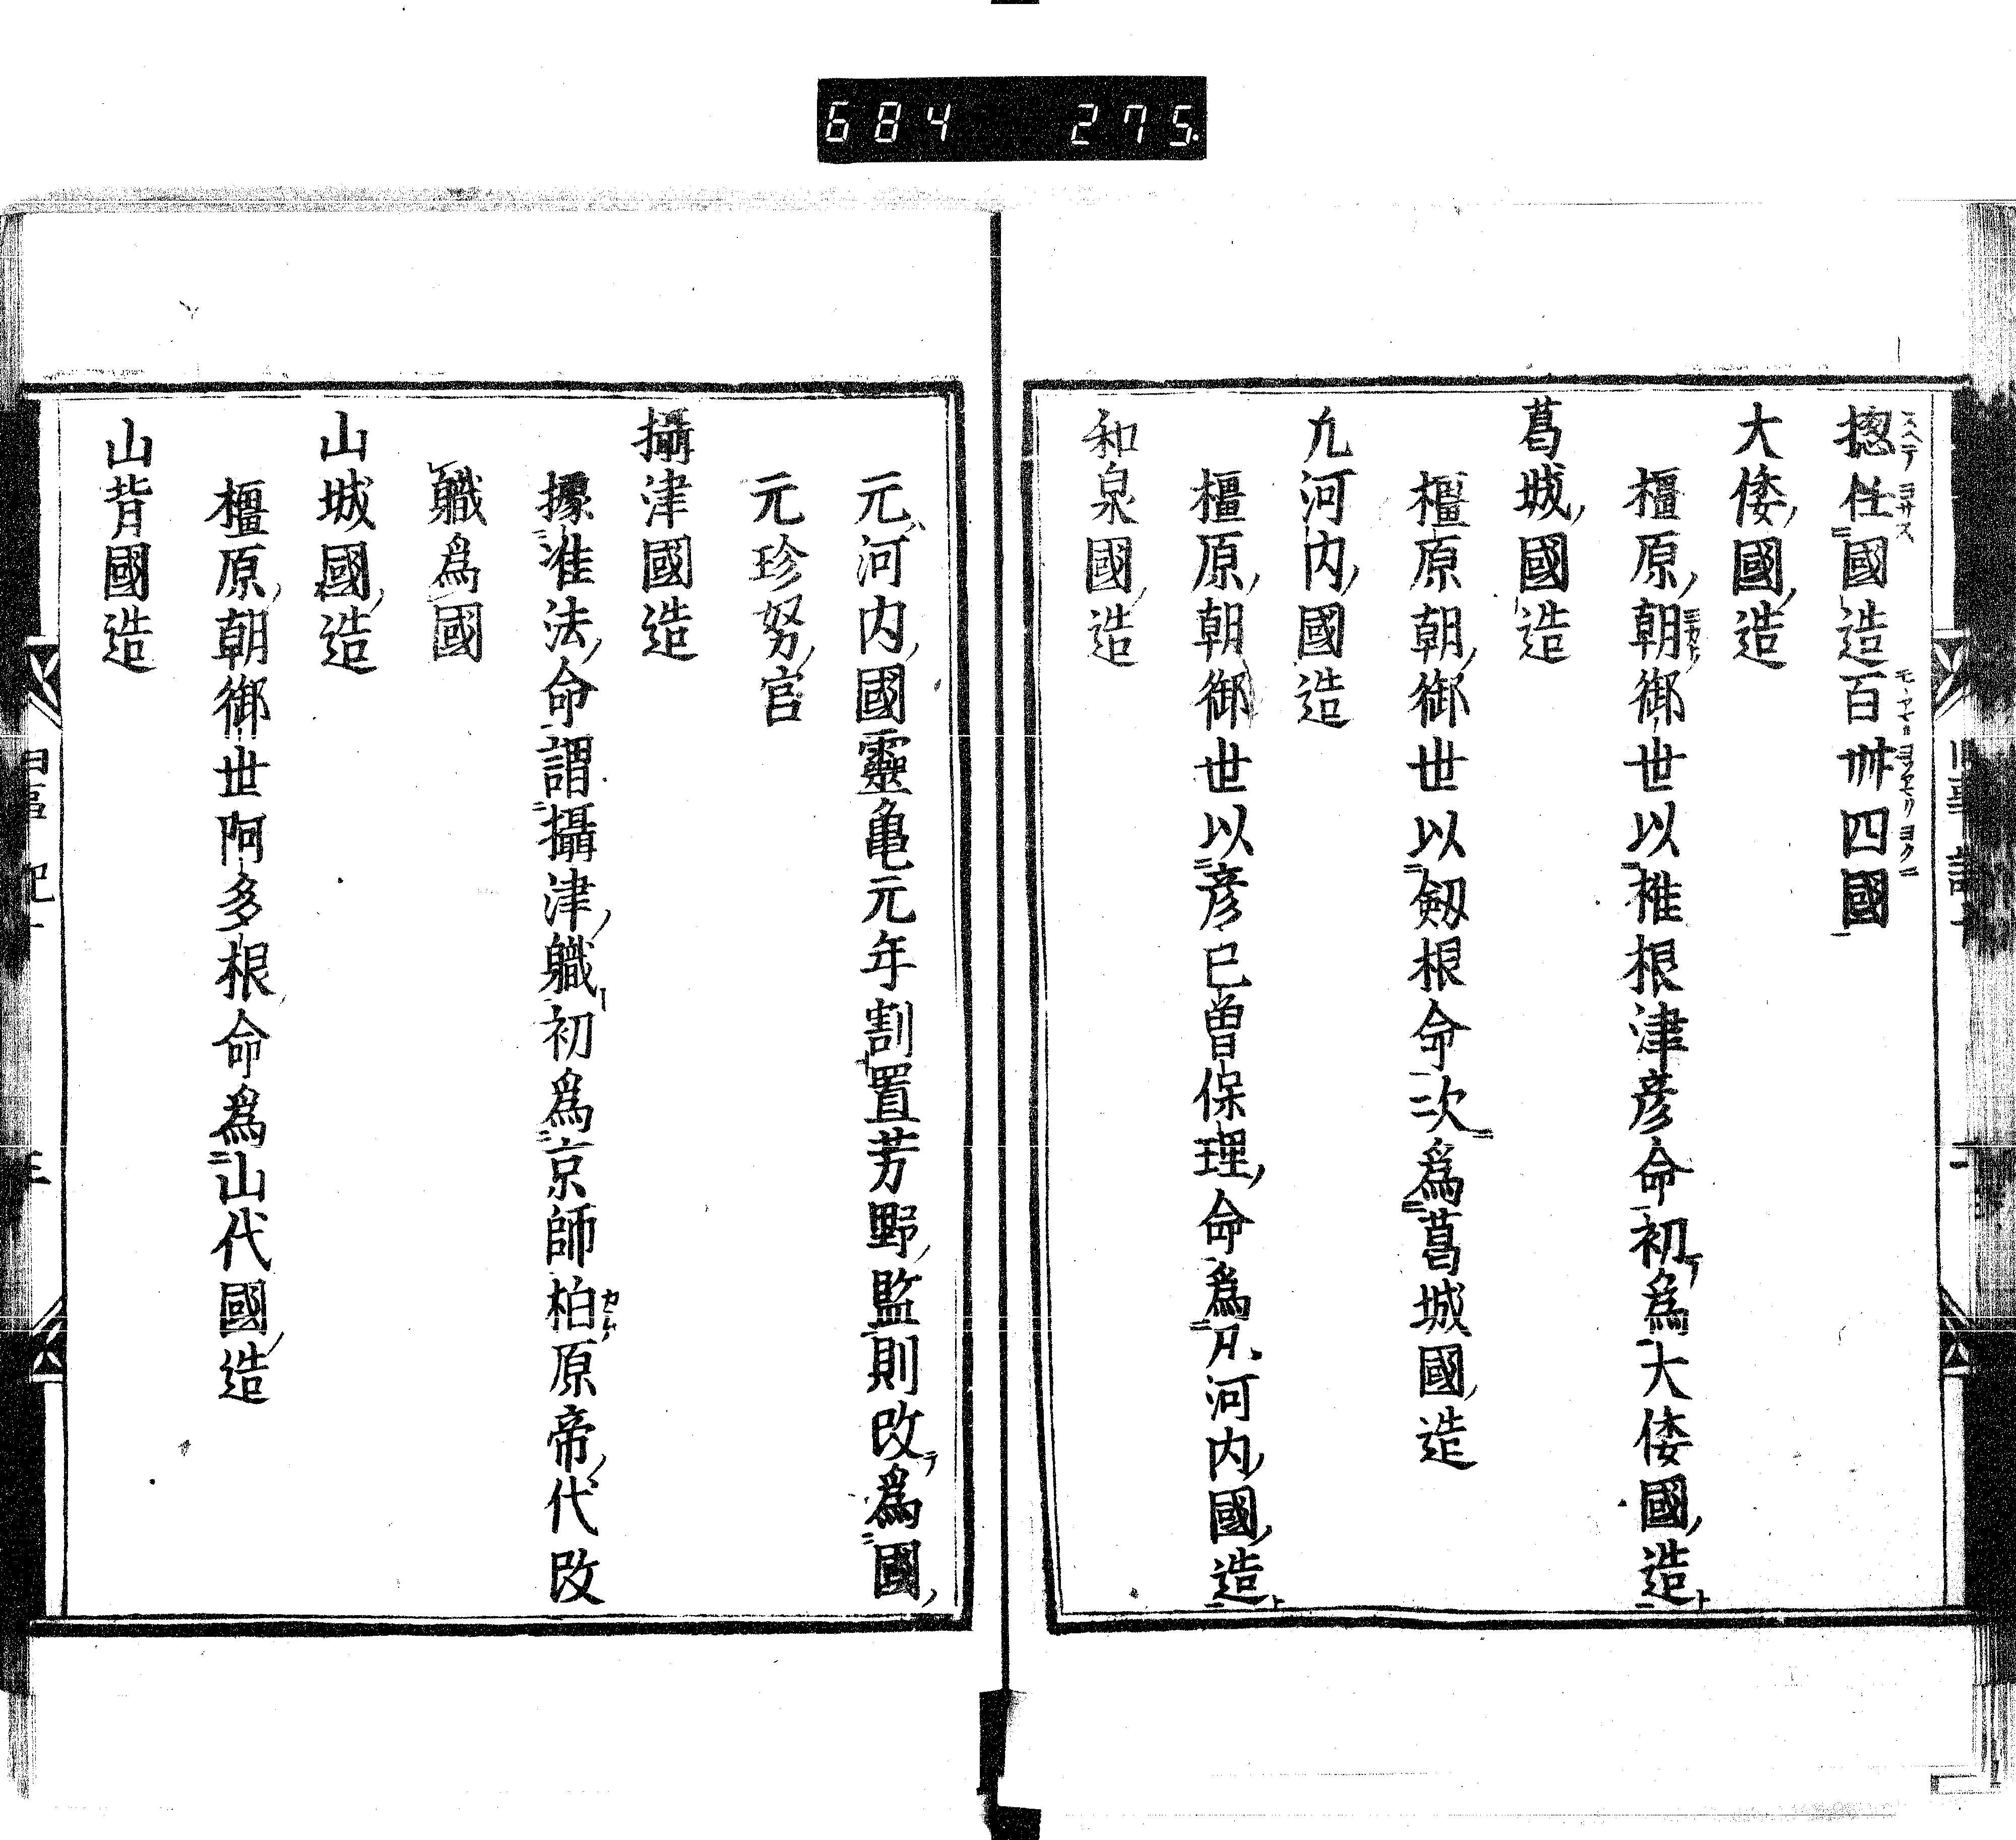 684 275
摠任國造百卌四國
大倭國造
橿原朝御世以椎根津彦命初爲大倭國造
葛城國造
橿原朝御世以剱根命次爲葛城國造
凢河内國造
橿原朝御世以彦巳曽保理命爲凡河内國造
和泉國造
元河内國靈亀元年割置芳野監則改爲國
元珍努宮
攝津國造
據准法命謂攝津軄初爲京師柏原帝代改
軄爲國
山城國造
橿原朝御世阿多根命爲山代國造
山背國造